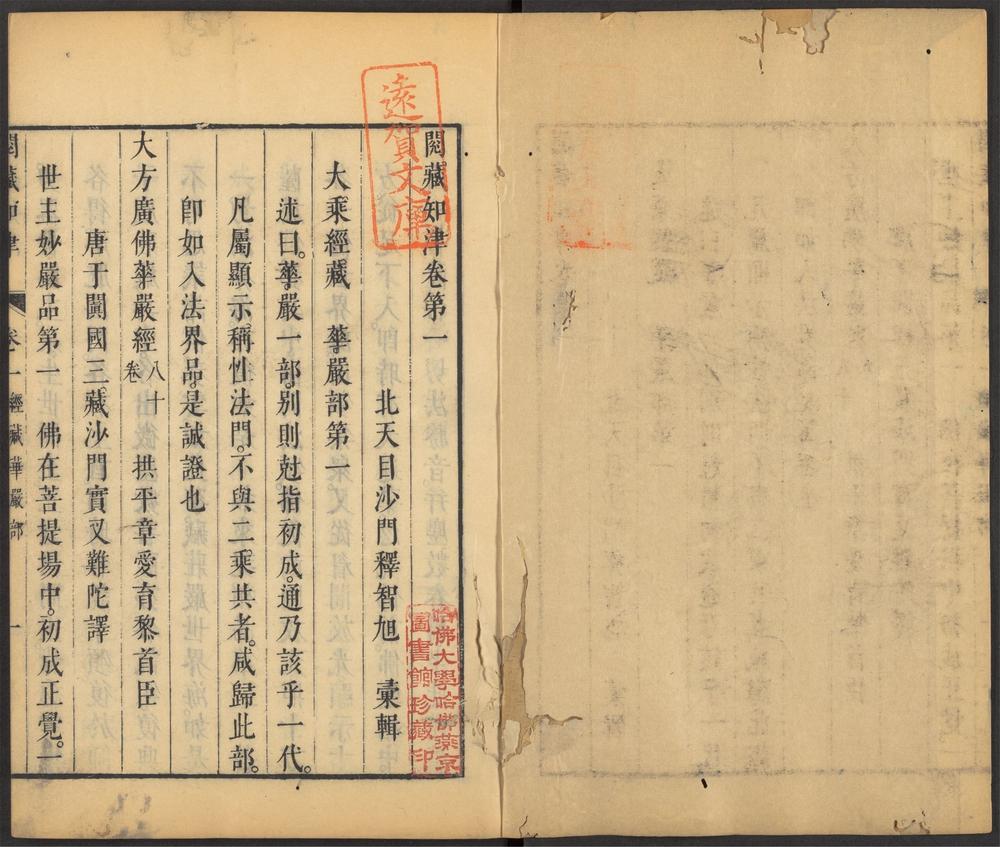 閱藏知津卷第一
北天目沙門釋智旭。彙輯
大乘經藏　華嚴部第一
述曰。華嚴一部。別則尅指初成。通乃該乎一代。
凡屬顯示稱性法門。不與二乘共者。咸歸此部。
卽如入法界品。是誠證也
大方廣佛華嚴經八十卷　拱平章愛育黎首臣
唐于闐國三藏沙門實叉難陀譯
世主妙嚴品第一佛在菩提場中。初成正覺。一
閱藏知津　卷一　經藏華嚴部　一
遠賀文庫
哈佛大學哈佛燕京
圖書館珍藏印